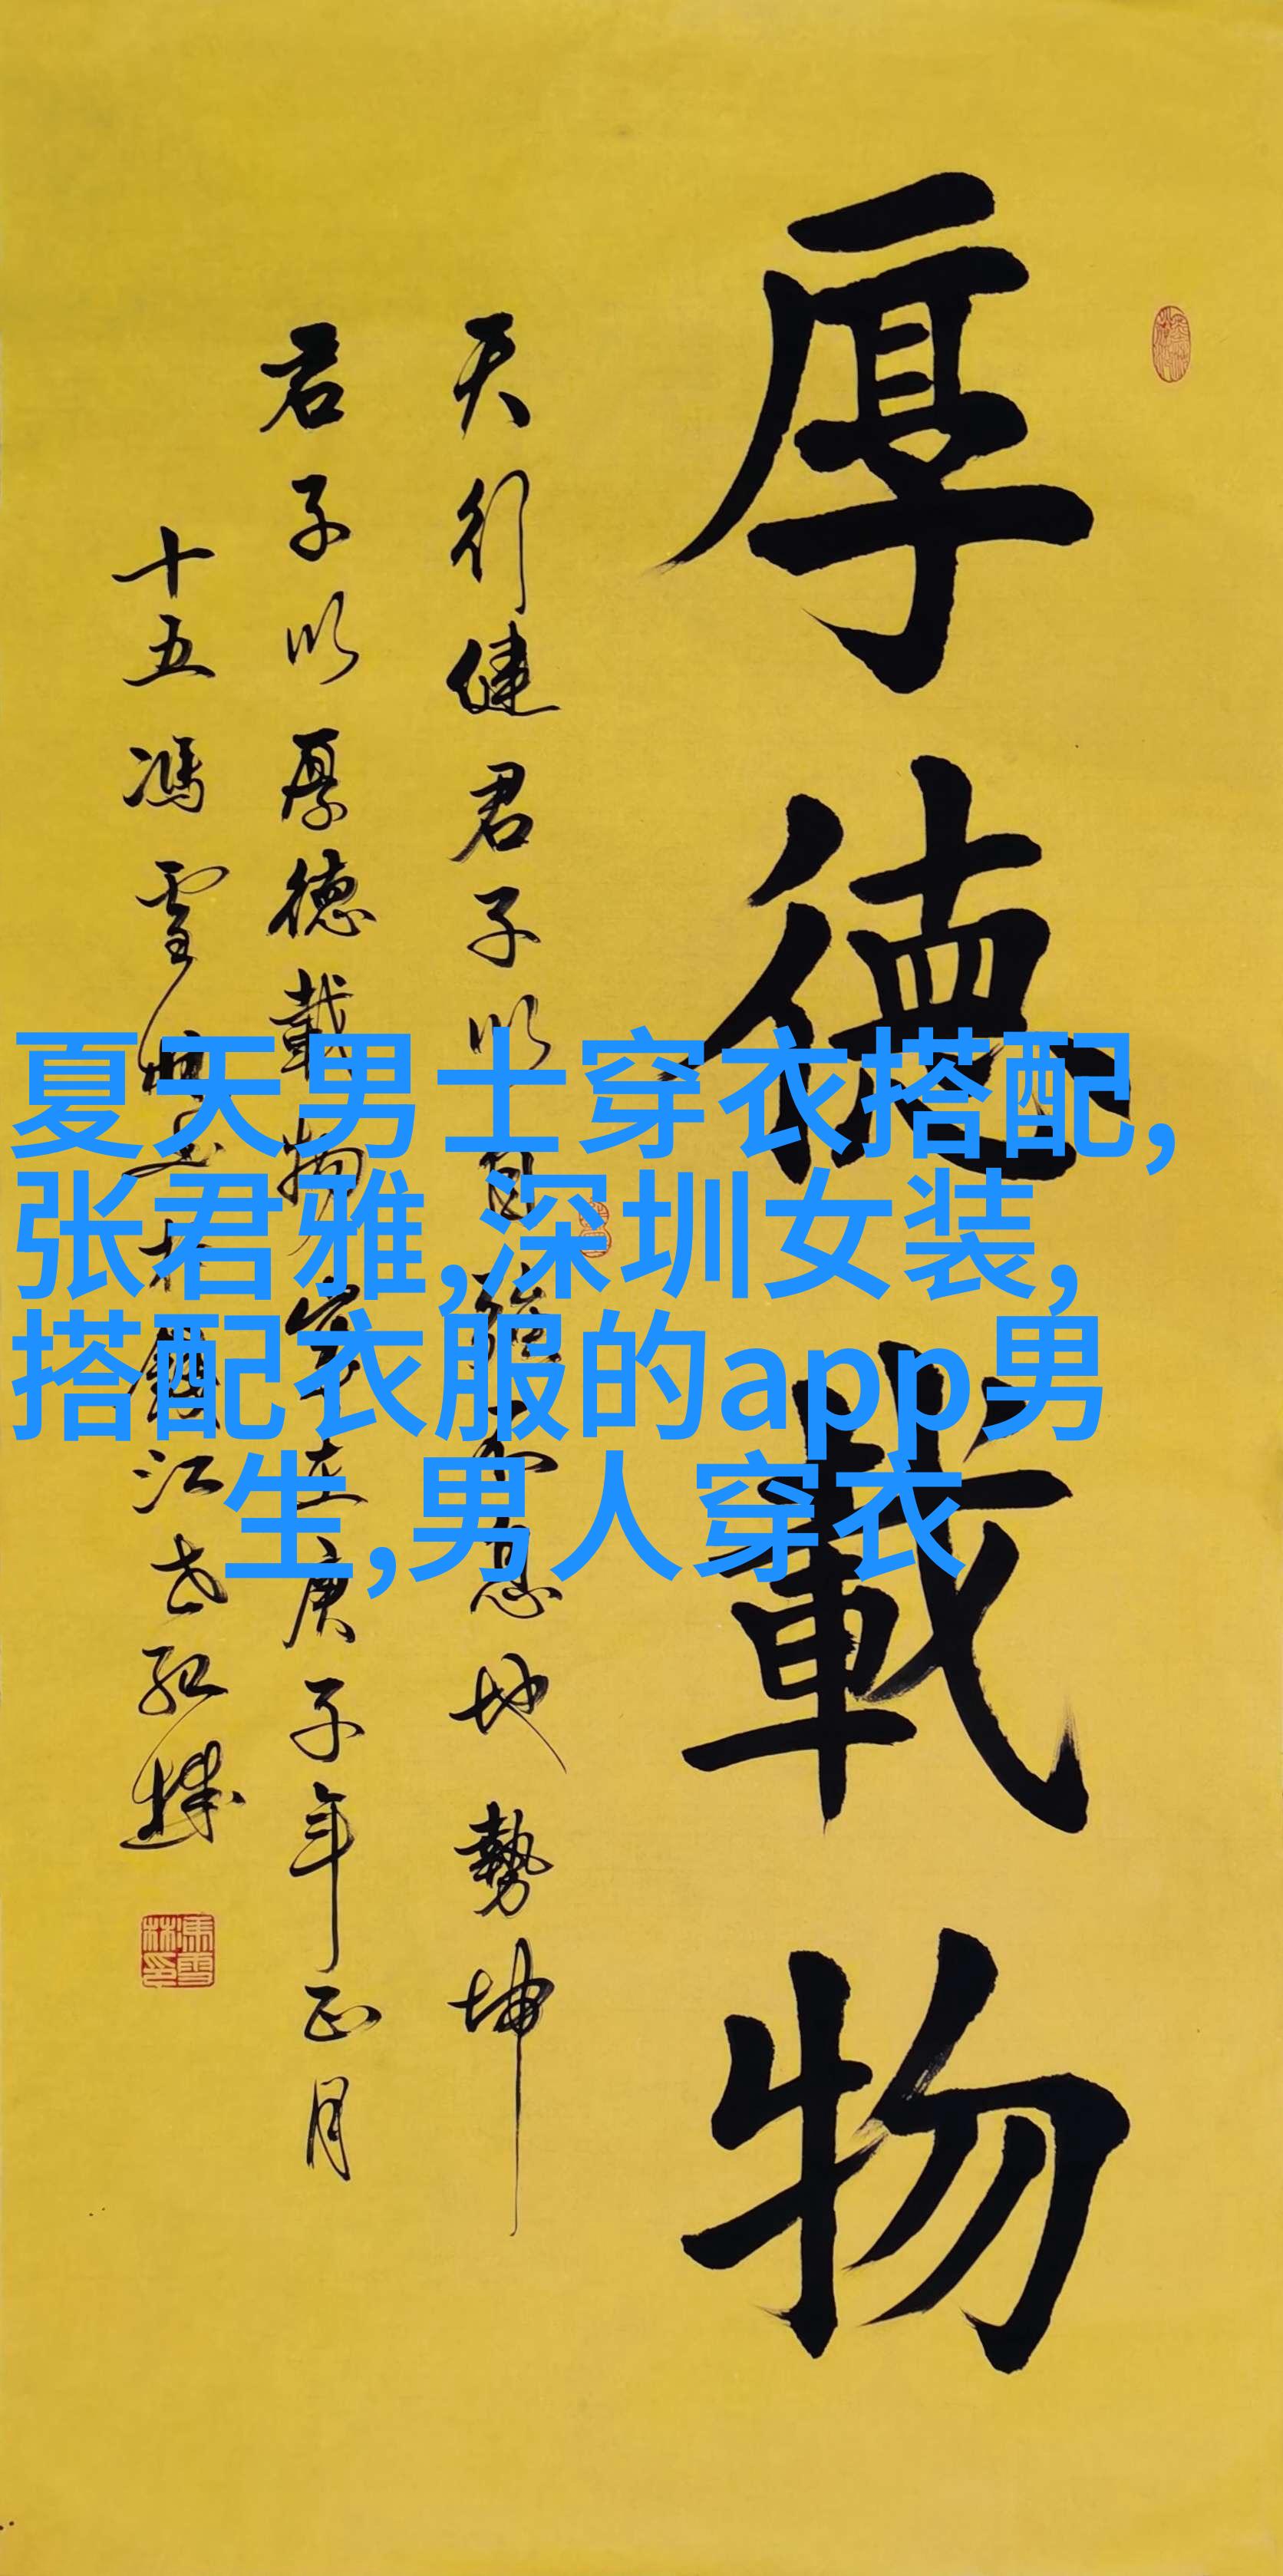 厚德載物
天行健君子以自強不息地勢坤
君子以厚德載物歲在庚子年正月
十五馮雪林
夏天男士穿衣搭配,
张君雅,深圳女装,
搭配衣服的app男
生,男人穿衣
馮雪林印